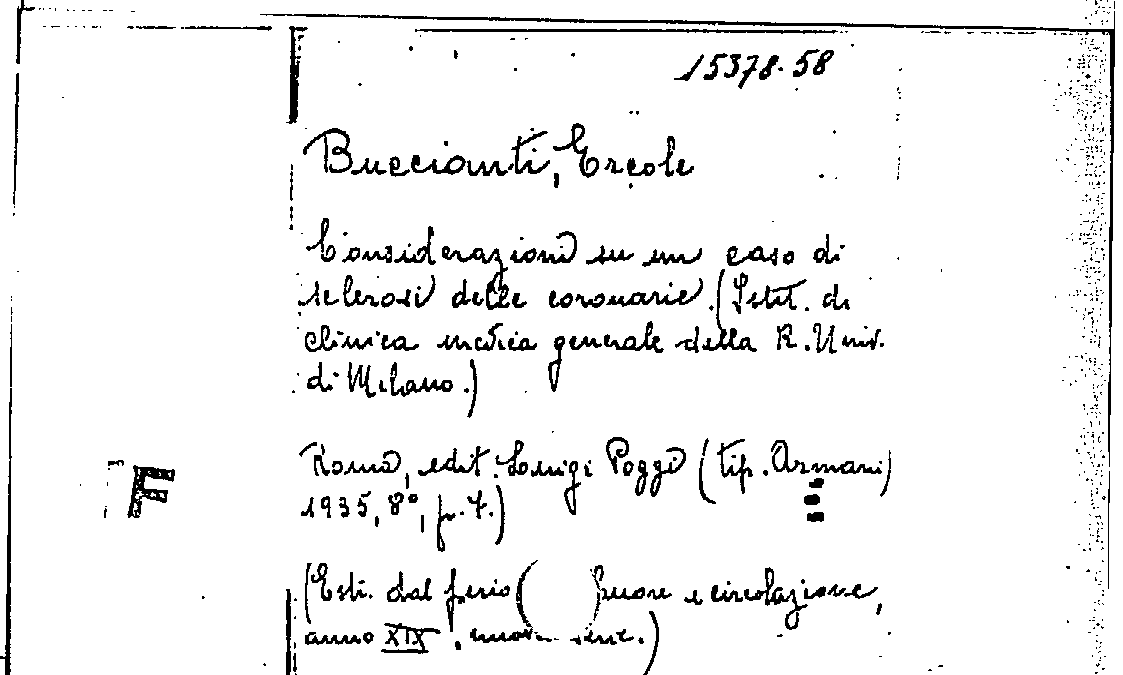 15378.58
Buccianti, Ercole
Considerazioni su un caso di
sclerosi delle coronarie. (Istit. di
clinica medica generale della R. Univ.
di Milano.)
Roma, edit. Luigi Pozzi (tip. Armani)
F
1935, 8°, p. 7.)
(Estr. dal perio Cuore e circolazione,
anno XIX, nuova serie.)